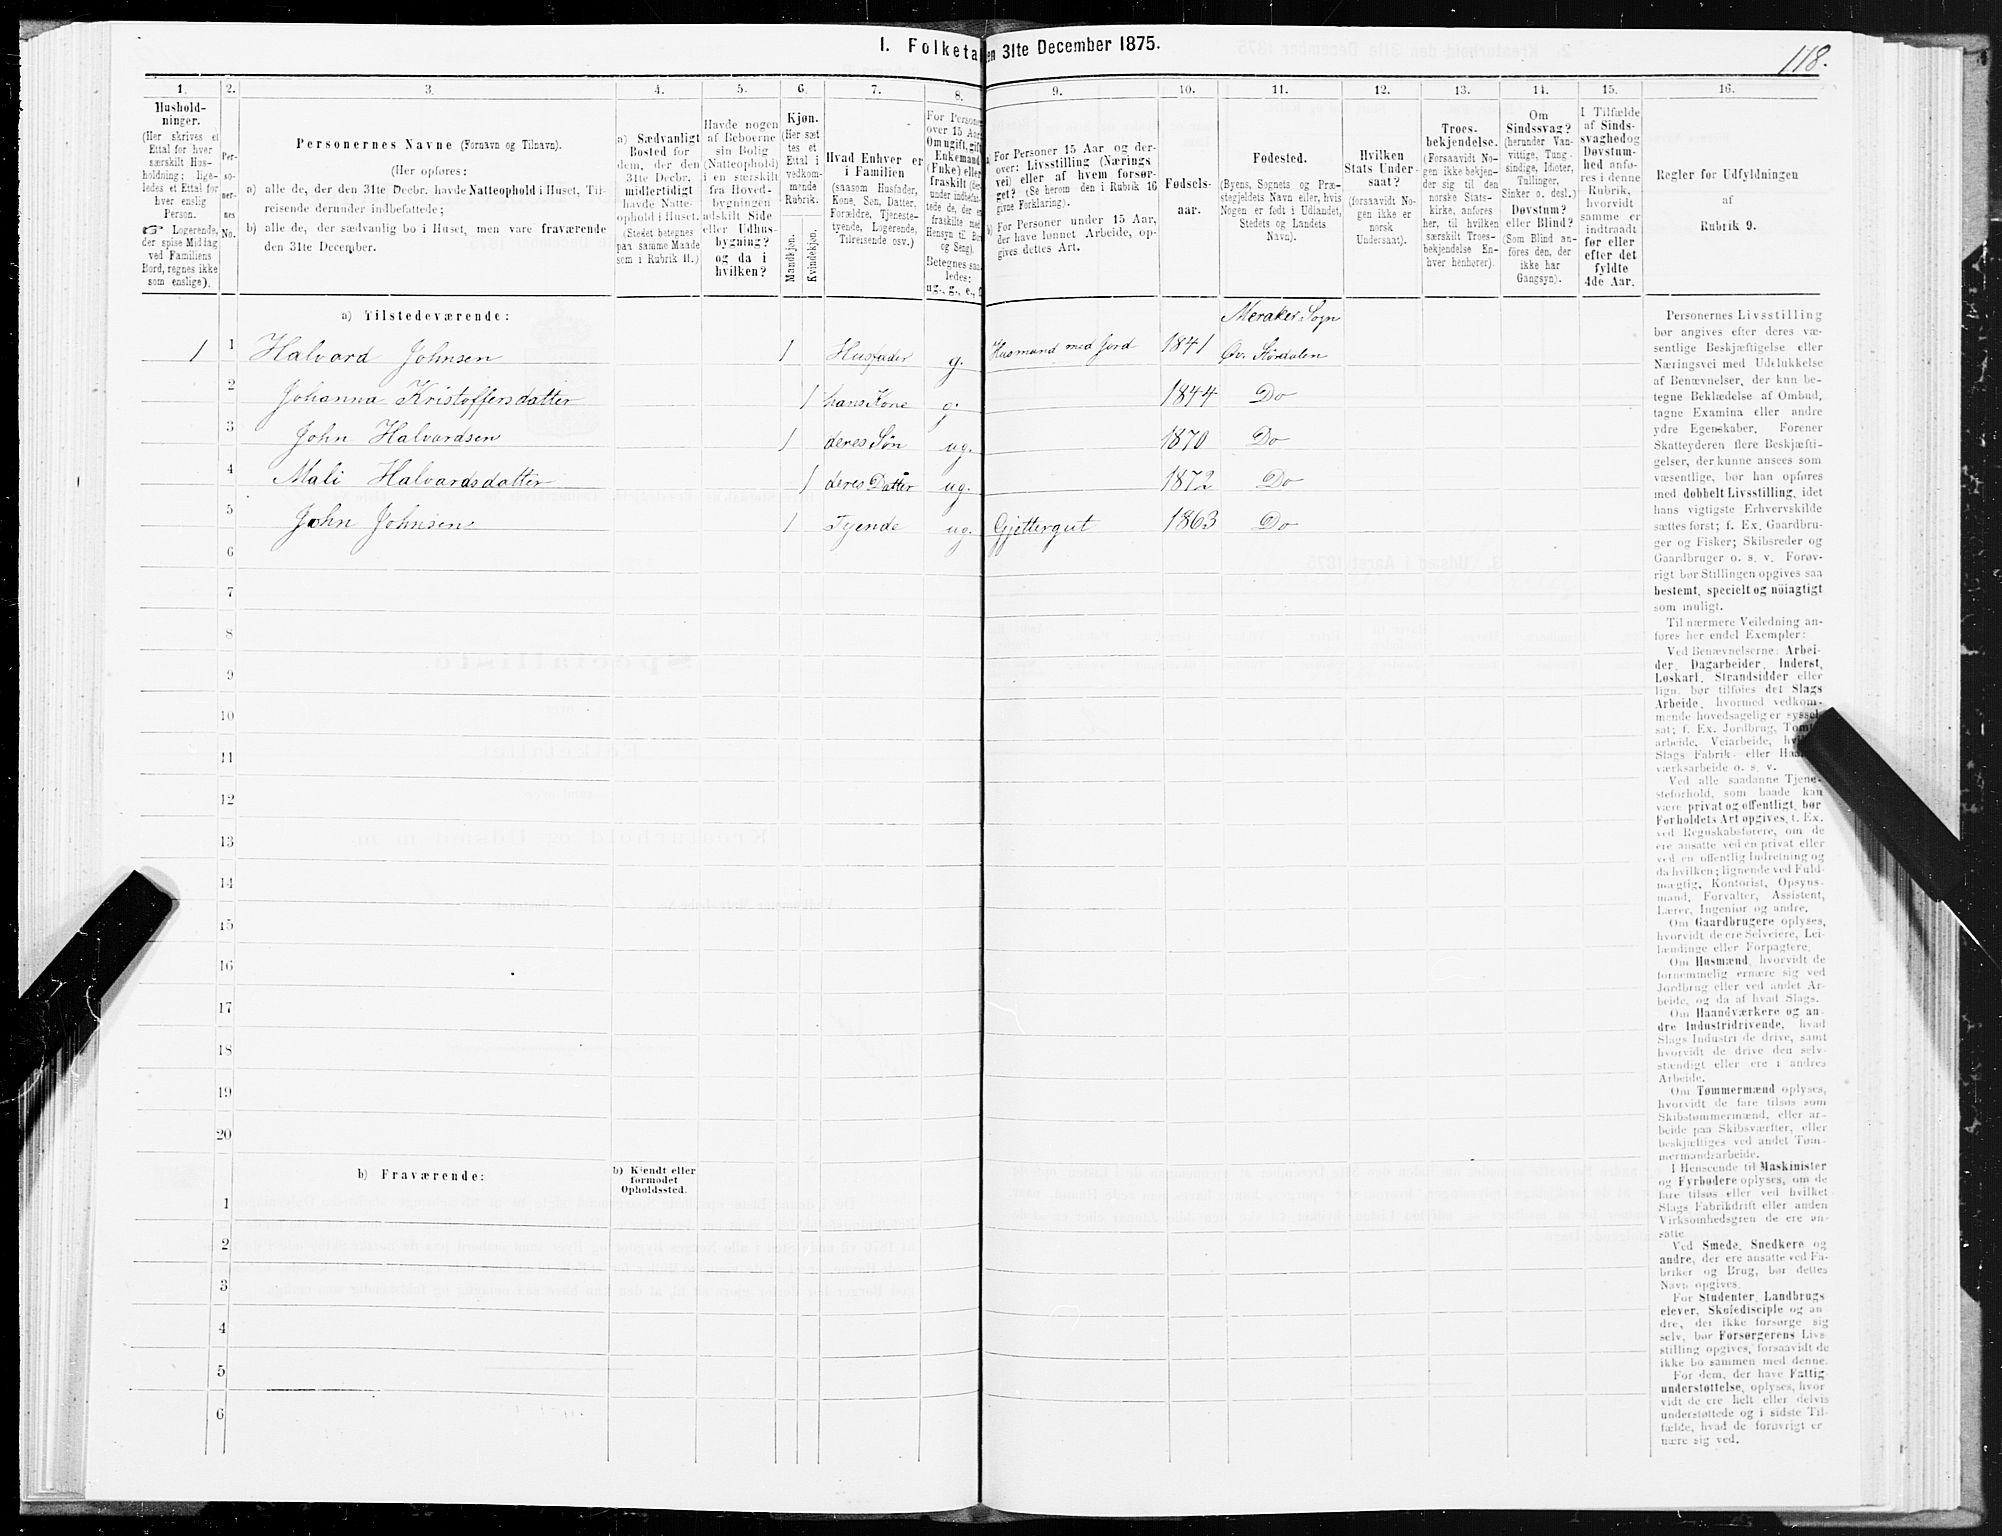 I. Folketa en 31te December 1875.
118.
1.
2.
3.
4.
5.
6.
7.
8.
9.
10.
11.
12.
13.
14.
15.
16.
Hushold-
ninger.
(Her skrives et
Ettal for hver
særskilt Hus-
holdning; lige-
ledes et Ettal for
hver enslig
Person.
☞ Logerende,
der spise Middag
ved Familiens
Bord, regnes ikke
som enslige).
Per-
so-
ner-
nes
No.
Personernes Navne (Fornavn og Tilnavn).
(Her opføres:
a) alle de, der den 31te Decbr. havde Natteophold i Huset, Til-
reisende derunder indbefattede;
b) alle de, der sædvanlig bo i Huset, men vare fraværende
den 31te December.
a) Sædvanligt
Bosted for
dem, der den
31te Decbr.
midlertidigt
havde Natte-
ophold i Huset.
(Stedet betegnes
paa samme Maade
som i Rubrik 11.)
Havde nogen
af Beboerne
sin Bolig
(Natteophold)
i en særskilt
fra Hoved-
bygningen
adskilt Side
eller Udhus-
bygning?
og da i
hvilken?
Kjøn.
(Her sæt
tes et
Ettal i
vedkom-
mende
Rubrik.
Mandkjøn.
Kvindekjøn.
Hvad Enhver er
i Familien
(saasom Husfader,
Kone, Søn, Datter,
Forældre, Tjeneste-
tyende, Logerende,
Tilreisende osv.)
For Personer
over 15 Aar
Om ugift, gift
Enkemand
(Enke) eller
fraskilt
Betegnes saa
ledes:
ug., g., e.,
a) For Personer 15 Aar og der-
over: Livsstilling (Nærings
vei) eller af hvem forsør-
get? (Se herom den i Rubrik 16
givne Forklaring).
b) For Personer under 15 Aar,
der have lønnet Arbeide, op-
gives dettes Art.
Fødsels-
aar.
Fødested.
(Byens, Sognets og Præ-
stegjeldets Navn eller, hvis
Nogen er født i Udlandet,
Stedets og Landets
Navn).
Hvilken
Stats Under-
saat?
(forsaavidt No-
gen ikke er
norsk
Undersaat).
Troes-
bekjendelse.
(Forsaavidt No-
gen ikke bekjen-
der sig til den
norske Stats-
kirke, anføres
her, til hvilken
særskilt Troes-
bekjendelse En-
hver henhører).
Om
Sindssvag?
(herunder Van-
vittige, Tung-
sindige, Idioter,
Tullinger,
Sinker o. desl.)
Døvstum?
eller Blind?
(Som Blind an-
føres den, der
ikke har
Gangsyn).
I Tilfælde
af Sinds-
svaghed og
Døvstum-
hed anfø-
res i denne
Rubrik,
hvorvidt
samme er
indtraadt
før eller
efter det
fyldte
4de Aar.
Regler for Udfyldningen
af
Rubrik 9.
a) Tilstedeværende:
Meraker Sogn
1 1 Halvard Johnsen 1 Husfader g. Husmand med Jord 1841 Øv. Størdalen
2 Johanna Kristoffersdatter 1 hans Kone g. 1844 Do
3 John Halvardsen 1 deres Søn ug. 1870 Do
4 Mali Halvardsdatter 1 deres Datter ug. 1872 Do
5 John Johnsen 1 Tyende ug. Gjettergut 1863 Do
6
7
8
9
10
11
12
13
14
15
16
17
18
19
20
b) Fraværende:
b) Kjendt eller
formodet
Opholdssted.
1
2
3
4
5
6
Personernes Livsstilling
bør angives efter deres væ-
sentlige Beskjæftigelse eller
Næringsvei med Udelukkelse
af Benævnelser, der kun be-
tegne Beklædelse af Ombud,
tagne Examina eller andre
ydre Egenskaber. Forener
Skatteyderen flere Beskjæfti-
gelser, der kunne ansees som
væsentlige, bør han opføres
med dobbelt Livsstilling, idet
hans vigtigste Erhvervskilde
sættes først; f. Ex. Gaardbru-
ger og Fisker; Skibsreder og
Gaardbruger o. s. v. Forøv-
rigt bør Stillingen opgives saa
bestemt, specielt og nöiagtigt
som muligt.
Til nærmere Veiledning an-
føres her endel Exempler:
Ved Benævnelserne: Arbei-
der, Dagarbeider, Inderst,
Løskarl, Strandsidder eller
lign. bør tilføies det Slags
Arbeide, hvormed vedkom-
mende hovedsagelig er syssel
sat; f. Ex. Jordbrug, Tømm
arbeide, Veiarbeide,
Slags Fabrik- eller
værksarbeide o. s. v.
Ved alle saadanne Tjene-
steforhold, som baade kan
være privat og offentligt, bør
Forholdets Art opgives, f. Ex.
ved Regnskabsførere, om de
ere ansatte ved en privat eller
ved en offentlig Indretning og
da hvilken; lignende ved Fuld-
mægtig, Kontorist, Opsyns-
mand, Forvalter, Assistent,
Lærer, Ingeniør og andre.
Om Gaardbrugere oplyses,
hvorvidt de ere Selveiere, Lei-
lændinge eller Forpagtere.
Om Husmænd, hvorvidt de
fornemmelig ernære sig ved
Jordbrug eller ved andet Ar-
beide, og da af hvad Slags.
Om Haandværkere og an-
dre Industridrivende, hvad
Slags Industri de drive, samt
hvorvidt de drive den selv-
stændigt eller ere i andres
Arbeide.
Om Tømmermænd oplyses,
hvorvidt de fare tilsøs som
Skibstømmermænd, eller ar-
beide paa Skibsværfter, eller
beskjæftiges ved andet Tøm-
mermandsarbeide.
I Henseende til Maskinister
og Fyrbødere oplyses, om de
fare tilsøs eller ved hvilket
Slags Fabrikdrift eller anden
Virksomhedsgren de ere an-
satte.
Ved Smede, Snedkere og
andre, der ere ansatte ved Fa-
briker og Brug, bør dettes
Navn opgives.
For Studenter, Landbrugs
elever, Skoledisciple og an
dre, der ikke forsørge sig
selv, bør Forsørgerens Livs-
stilling opgives, forsaavidt de
ikke bo sammen med denne.
For dem, der have Fattig
understøttelse, oplyses, hvor
vidt de ere helt eller delvis
understøttede og i sidste Til-
fælde, hvad de forøvrigt er
nære sig ved.